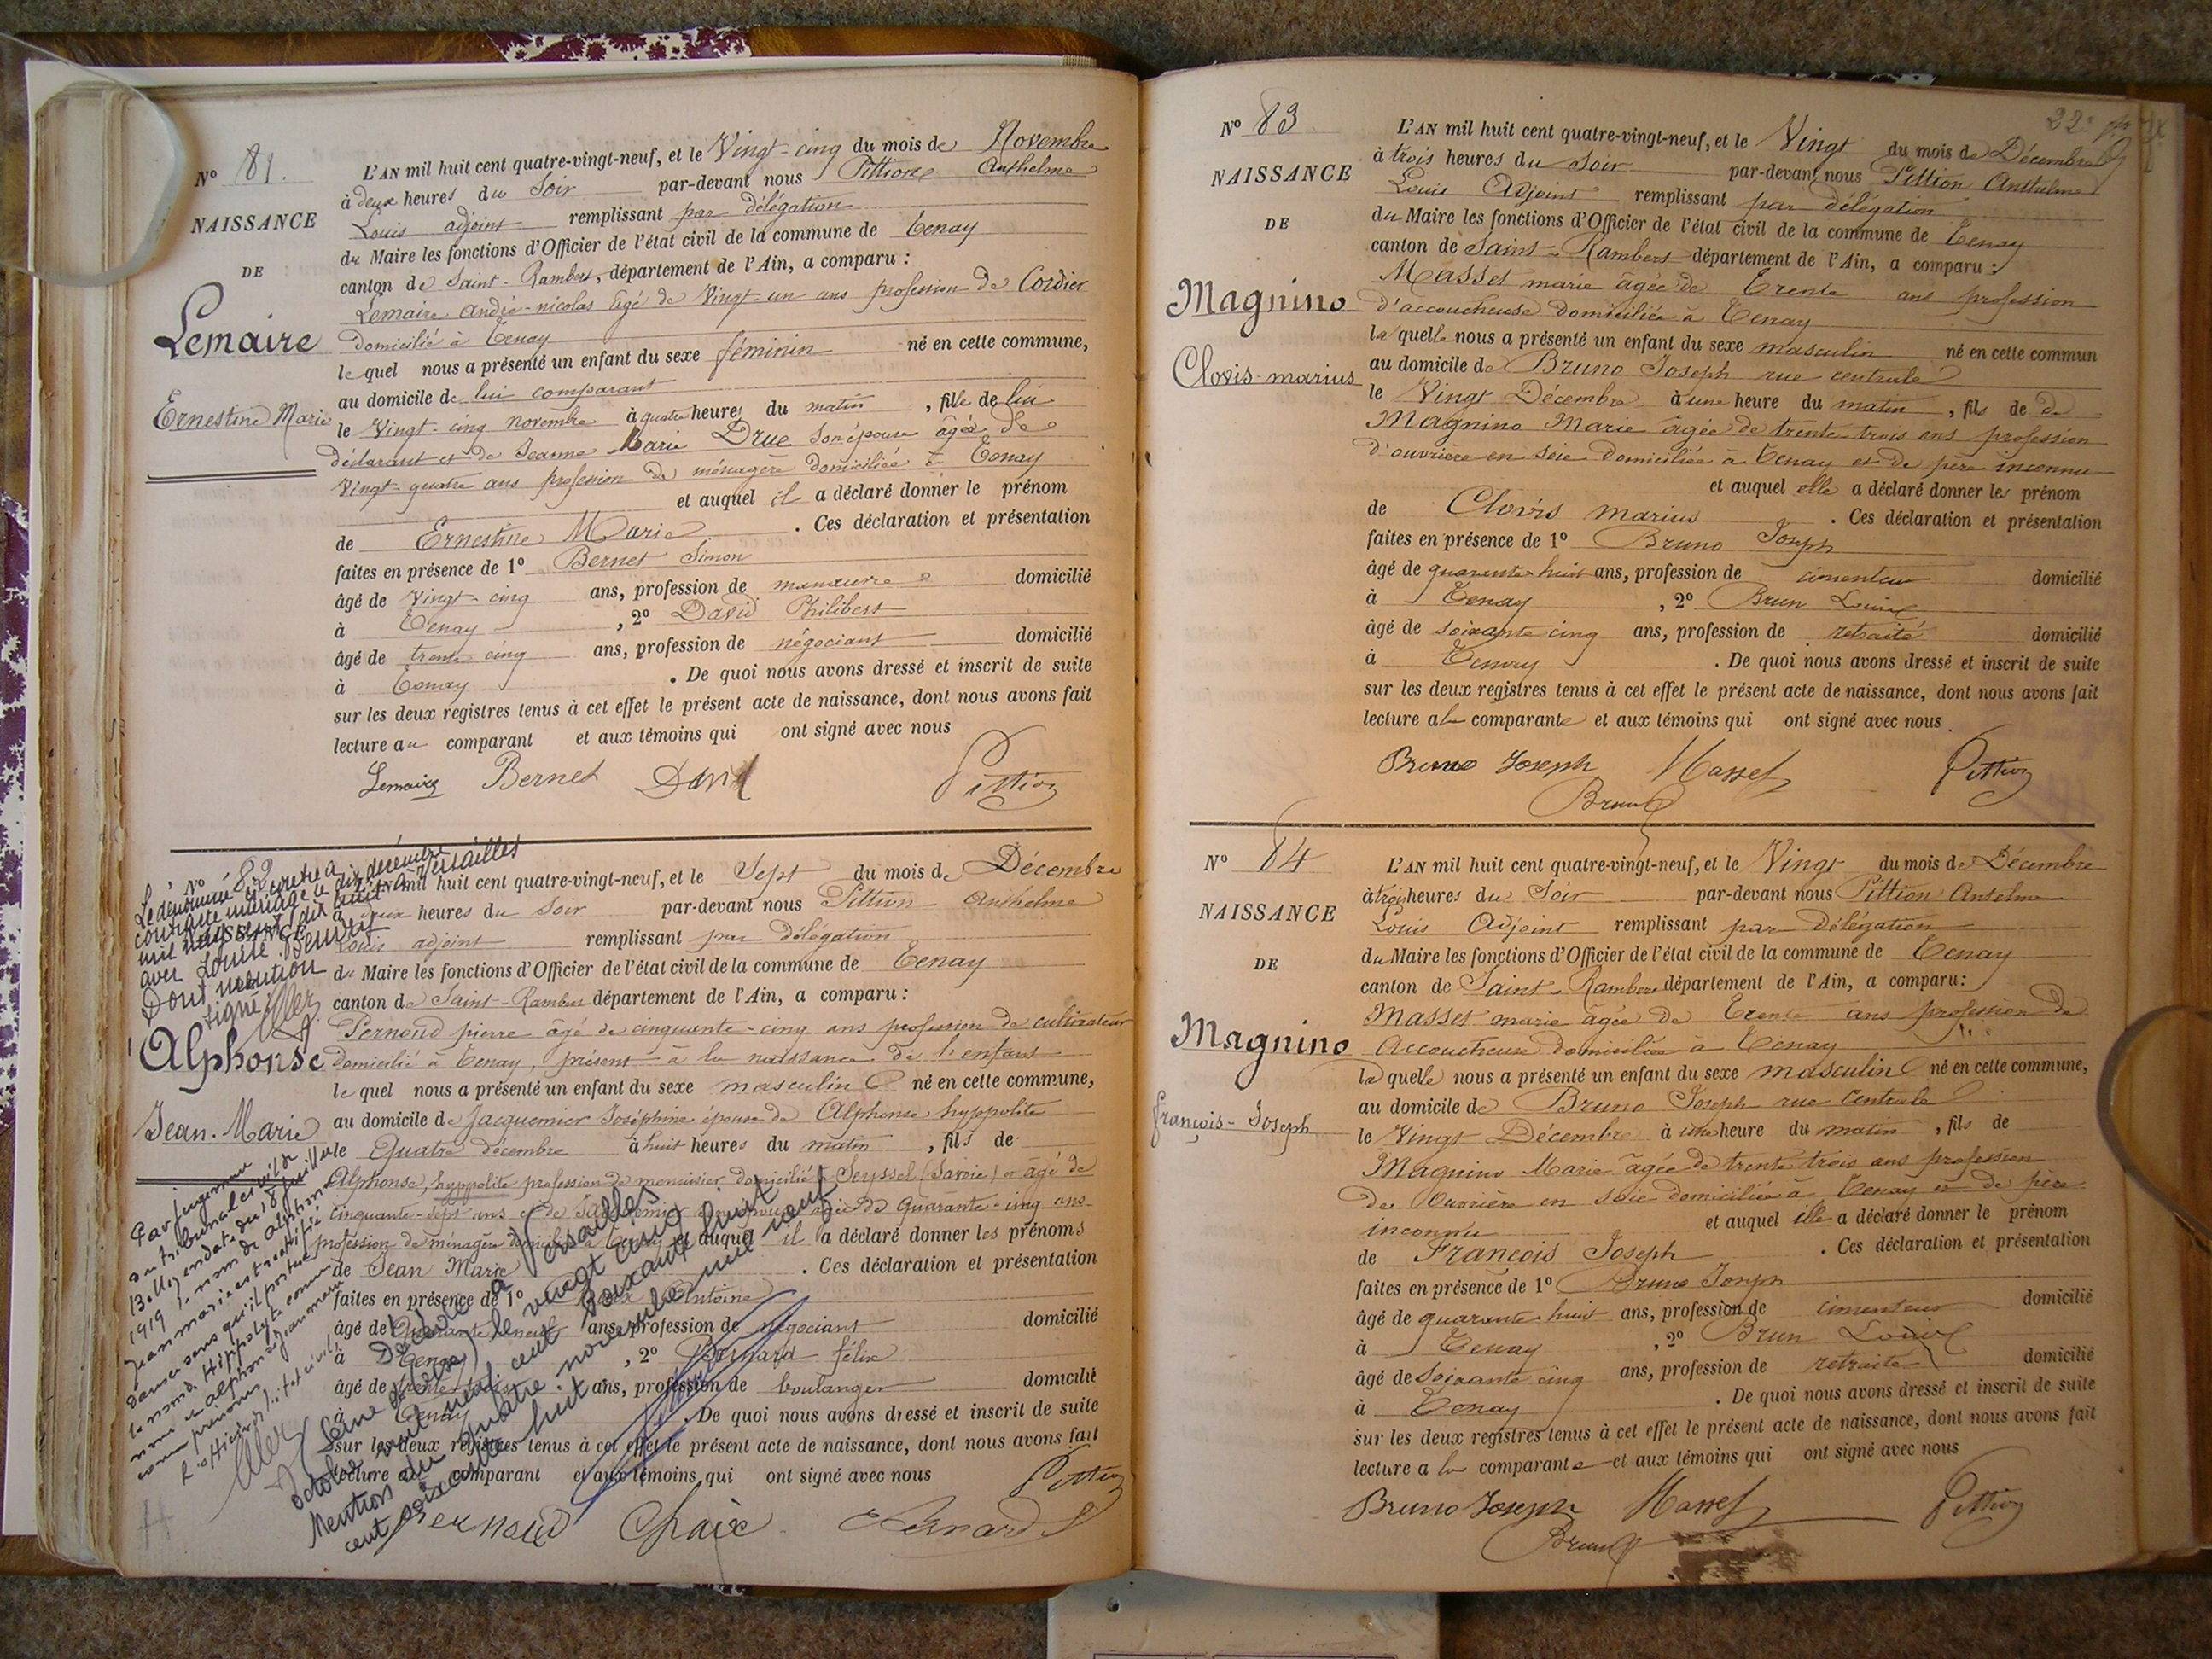 N° 81.
NAISSANCE
DE
Lemaire
Ernestine Marie
L'AN mil huit cent quatre-vingt-neuf, et le Vingt-cinq du mois de Novembre
à deux heures du Soir par-devant nous Pittion Anthelme
Louis adjoint remplissant par délégation
du Maire les fonctions d'Officier de l'état civil de la commune de Tenay
canton de Saint-Rambert, département de l'Ain, a comparu :
Lemaire André-nicolas âgé de Vingt-un ans profession de Cordier
domicilié à Tenay
lequel nous a présenté un enfant du sexe féminin né en cette commune,
au domicile de lui comparant
le Vingt-cinq novembre à quatre heures du matin, fille de lui
déclarant et de Jeanne Marie Drue son épouse âgée de
Vingt-quatre ans profession de ménagère domiciliée à Tenay
et auquel il a déclaré donner le prénom
de Ernestine Marie . Ces déclaration et présentation
faites en présence de 1° Bernet Simon
âgé de Vingt-cinq ans, profession de manœuvre domicilié
à Tenay , 2° David Philibert
âgé de trente cinq ans, profession de négociant domicilié
à Tenay . De quoi nous avons dressé et inscrit de suite
sur les deux registres tenus à cet effet le présent acte de naissance, dont nous avons fait
lecture au comparant et aux témoins qui ont signé avec nous
Lemaire Bernet David Pittion
N° 82
NAISSANCE
Le dénommé ci-contre a
contracté mariage le dix décembre
mil neuf cent dix huit à Versailles
avec Louise
Dont mention
signé
Alphonse
Jean-Marie
L'AN mil huit cent quatre-vingt-neuf, et le Sept du mois de Décembre
à deux heures du Soir par-devant nous Pittion Anthelme
Louis adjoint remplissant par délégation
du Maire les fonctions d'Officier de l'état civil de la commune de Tenay
canton de Saint-Rambert département de l'Ain, a comparu :
Pernoud pierre âgé de cinquante-cinq ans profession de cultivateur
domicilié à Tenay, présent à la naissance de l'enfant
lequel nous a présenté un enfant du sexe masculin né en cette commune,
au domicile de Jacquemier Joséphine épouse de Alphonse hyppolite
le Quatre décembre à huit heures du matin, fils de
Alphonse, hyppolite profession de menuisier domicilié à Seyssel (Savoie) âgé de
cinquante-sept ans et de Jacquemier son épouse âgée de Quarante-cinq ans
profession de ménagère domiciliée à Tenay et auquel il a déclaré donner les prénoms
de Jean Marie . Ces déclaration et présentation
faites en présence de 1° Chaix Antoine
âgé de Quarante neuf ans, profession de négociant domicilié
à Tenay , 2° Bernard félix
âgé de trente trois ans, profession de boulanger domicilié
à Tenay . De quoi nous avons dressé et inscrit de suite
sur les deux registres tenus à cet effet le présent acte de naissance, dont nous avons fait
lecture au comparant et aux témoins qui ont signé avec nous
Pernoud Chaix Bernard Pittion
Par jugement
du tribunal civil de
Belley en date du 18 juillet
1919 le nom de Alphonse
Jean marie est rectifié
dans ce sens qu'il portera
le nom d. Hippolyte comme
nom et alphonse Jean marie
comme prénoms
L'officier de l'état civil
Décédé à Versailles
(Seine et Oise) le vingt cinq
octobre mil neuf cent soixante huit
Mention du quatre novembre mil neuf
cent soixante huit
22
N° 83
NAISSANCE
DE
Magnino
Clovis-marius
L'AN mil huit cent quatre-vingt-neuf, et le Vingt du mois de Décembre
à trois heures du Soir par-devant nous Pittion Anthelme
Louis Adjoint remplissant par délégation
du Maire les fonctions d'Officier de l'état civil de la commune de Tenay
canton de Saint-Rambert département de l'Ain, a comparu :
Masset marie âgée de Trente ans profession
d'accoucheuse domiciliée à Tenay
la quelle nous a présenté un enfant du sexe masculin né en cette commun
au domicile de Bruno Joseph rue centrale
le Vingt Décembre à une heure du matin, fils de de
Magnino Marie âgée de trente trois ans profession
d'ouvrière en soie domiciliée à Tenay et de père inconnu
et auquel elle a déclaré donner les prénom
de Clovis marius . Ces déclaration et présentation
faites en présence de 1° Bruno Joseph
âgé de quarante huit ans, profession de cimenteur domicilié
à Tenay , 2° Brun Louis
âgé de soixante cinq ans, profession de retraité domicilié
à Tenay . De quoi nous avons dressé et inscrit de suite
sur les deux registres tenus à cet effet le présent acte de naissance, dont nous avons fait
lecture a la comparante et aux témoins qui ont signé avec nous.
Bruno Joseph Masset Pittion
Brun
N° 84
NAISSANCE
DE
Magnino
françois-Joseph
L'AN mil huit cent quatre-vingt-neuf, et le Vingt du mois de Décembre
à trois heures du Soir par-devant nous Pittion Antelme
Louis Adjoint remplissant par délégation
du Maire les fonctions d'Officier de l'état civil de la commune de Tenay
canton de Saint-Rambert département de l'Ain, a comparu :
Masset marie âgée de Trente ans profession de
Accoucheuse domiciliée à Tenay
la quelle nous a présenté un enfant du sexe masculin né en cette commune,
au domicile de Bruno Joseph rue Centrale
le Vingt Décembre à une heure du matin, fils de
Magnino Marie âgée de trente trois ans profession
de Ouvrière en soie domiciliée à Tenay et de père
inconnu et auquel elle a déclaré donner le prénom
de François Joseph . Ces déclaration et présentation
faites en présence de 1° Bruno Joseph
âgé de quarante huit ans, profession de cimenteur domicilié
à Tenay , 2° Brun Louis
âgé de Soixante cinq ans, profession de retraité domicilié
à Tenay . De quoi nous avons dressé et inscrit de suite
sur les deux registres tenus à cet effet le présent acte de naissance, dont nous avons fait
lecture a la comparante et aux témoins qui ont signé avec nous
Bruno Joseph Masset Pittion
Brun